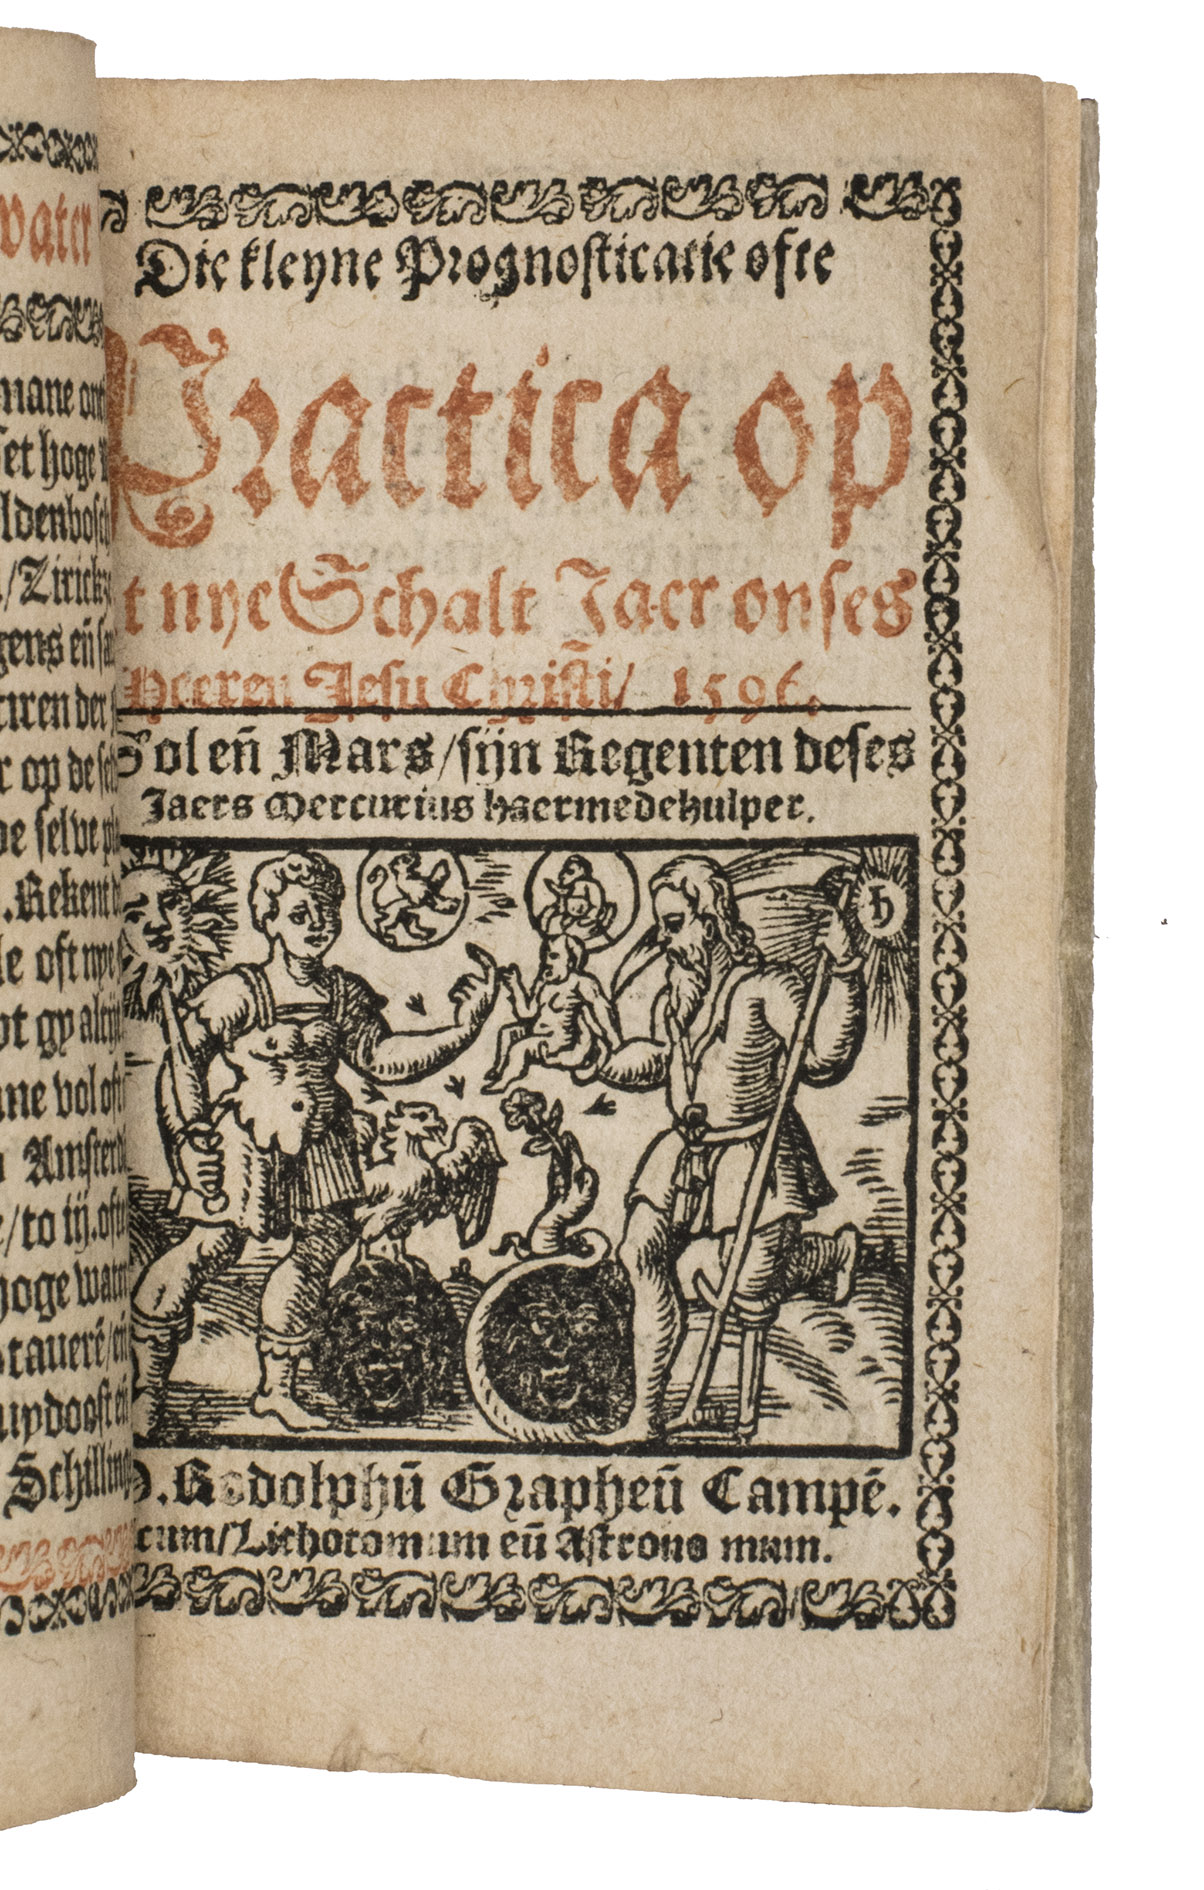 water
mane ont
et hoge
ldenbosch
/Zirickz
gens eñ
tiren der
r op de sel
de selve
. Rekent
le oft nye
ot gy
ane vol oft
Amsterd
/to iij. oft
hoge water
taueré/eñ
uydoost eñ
Schilling
Die kleyne Prognosticatie ofte
Practica op
t nye Schalt Jaer onses
Heeren Jesu Christi/ 1596.
Sol eñ Mars/sijn Regenten deses
Jaers Mercurius haermedehulper.
♄
D. Rodolphū Grapheū Campē.
cum/Lithotomum eñ Astrono mum.